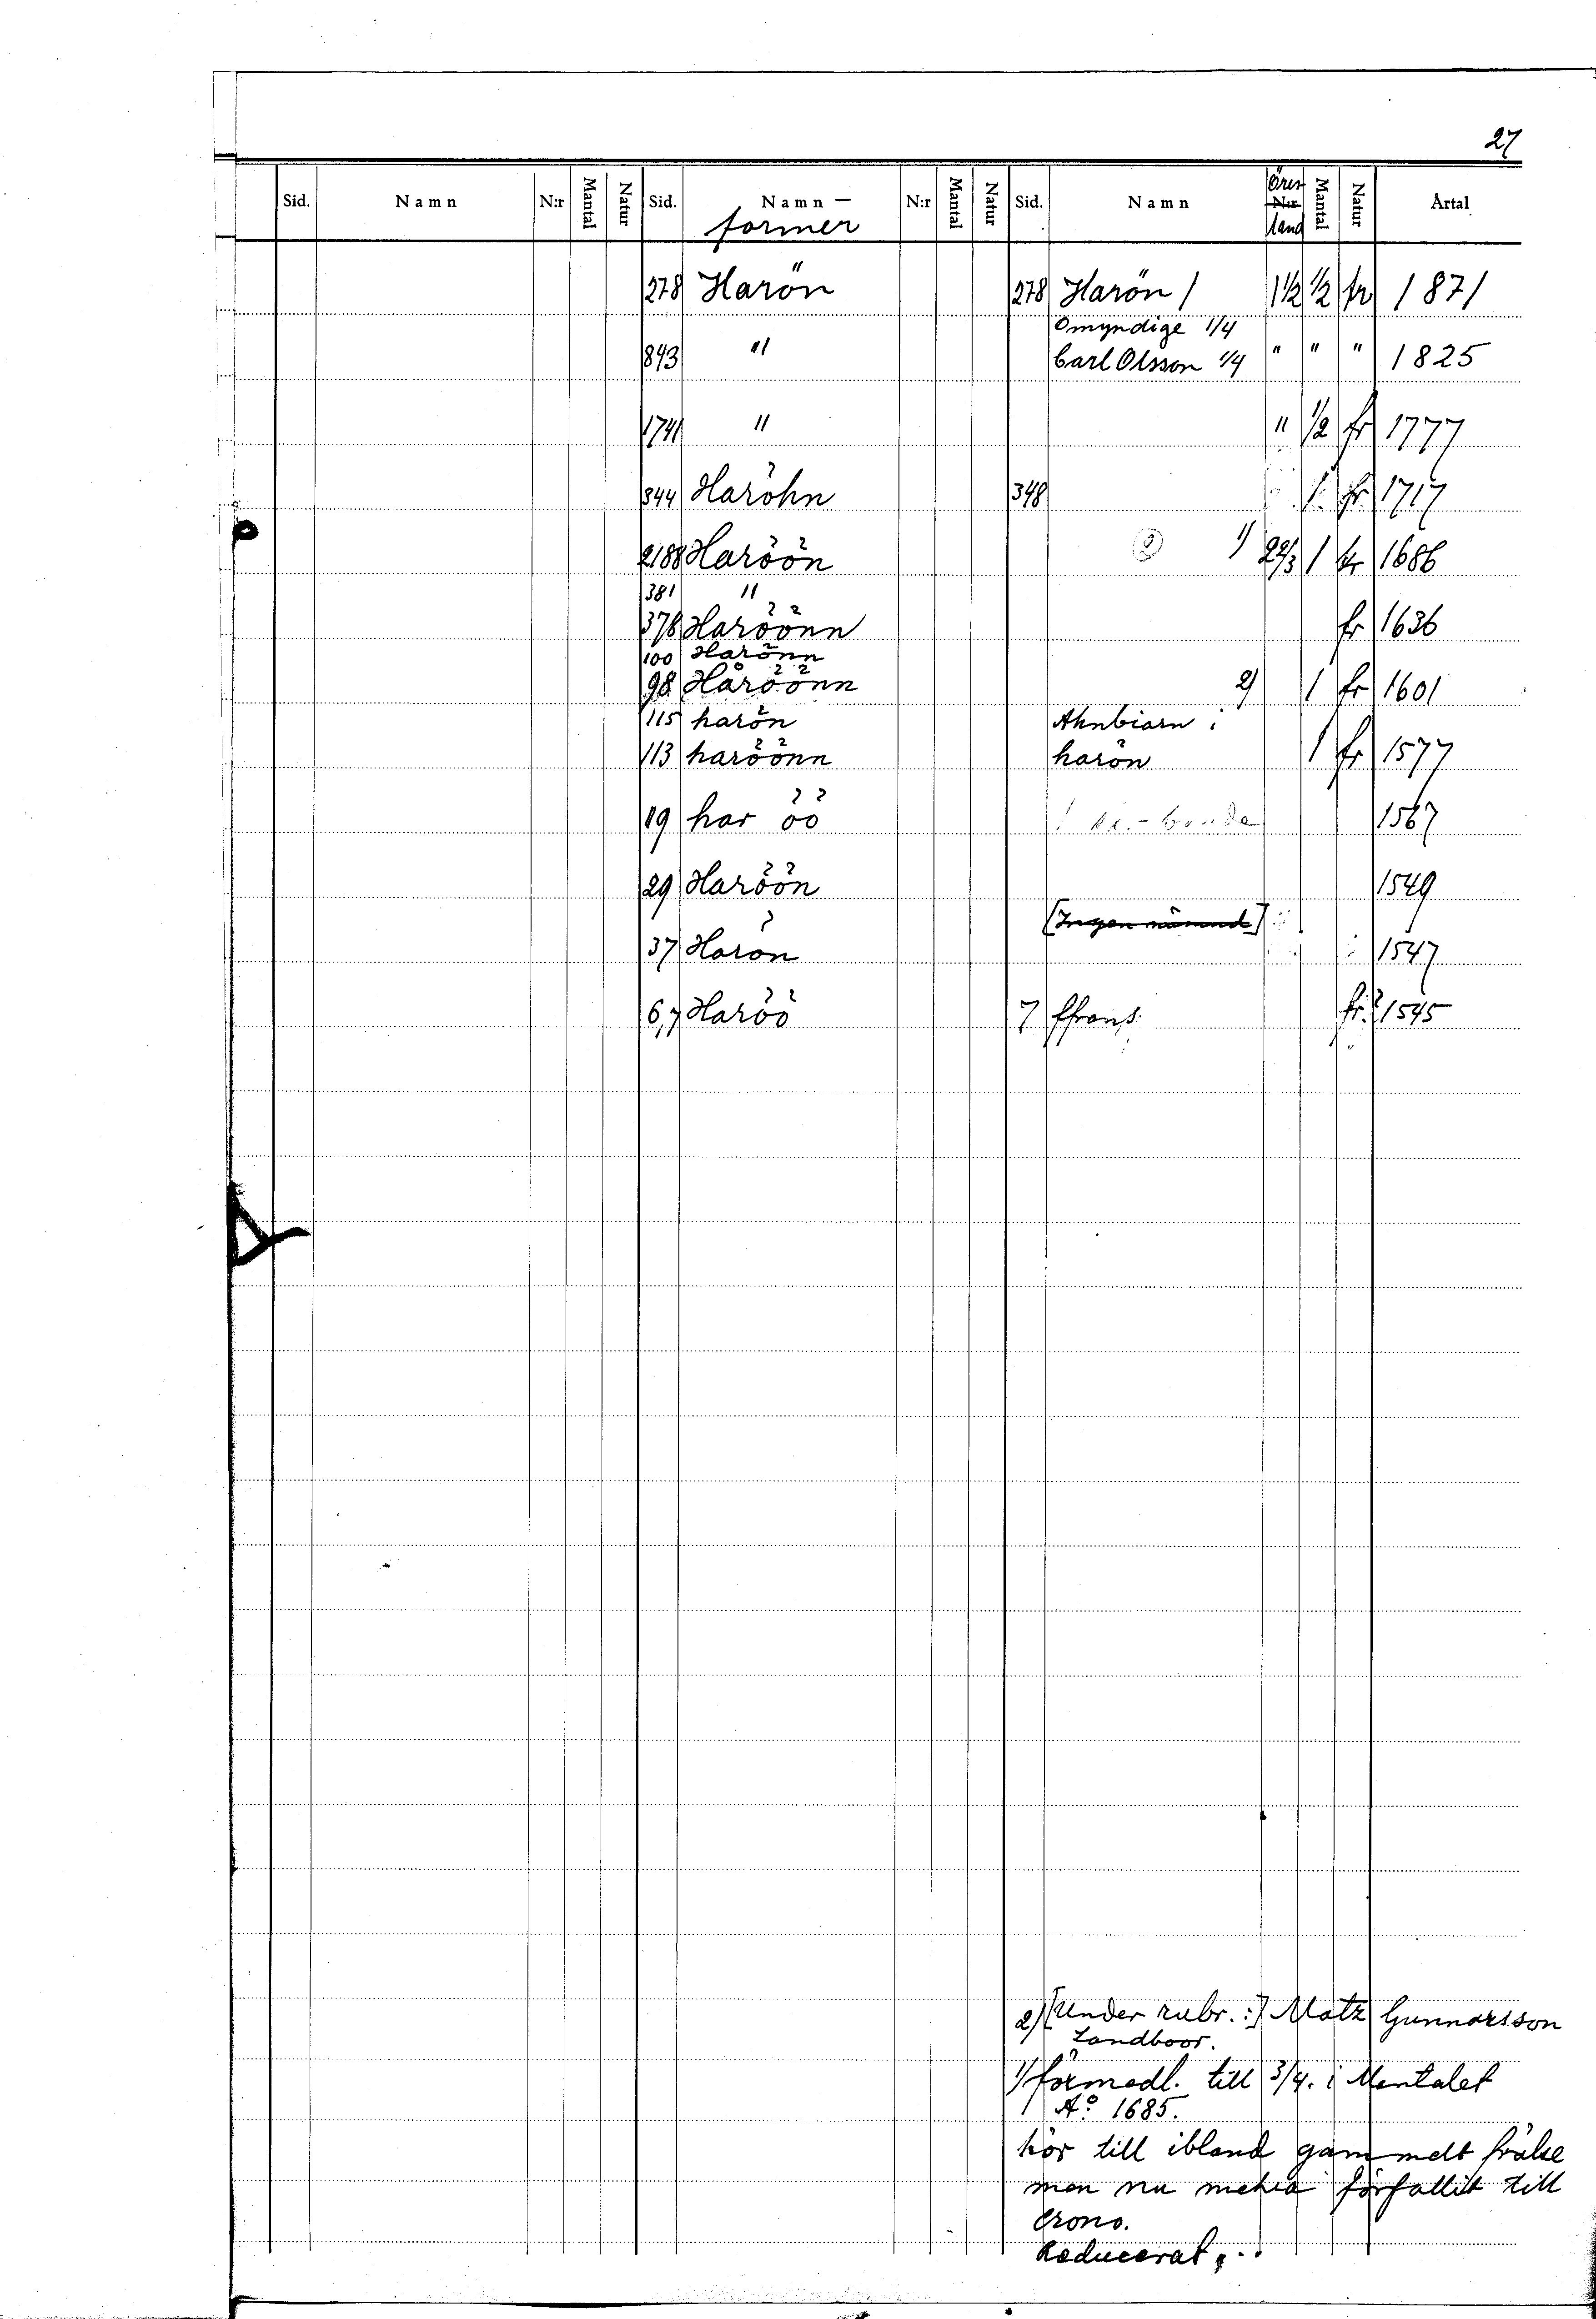 27
Sid. Namn N:r Mantal Natur Sid. Namn- N:r Mantal Natur Sid. Namn Öres N:r land Mantal Natur Årtal
former
278 Harön 278 Harön 1 1 1/2 1/2 fr 1871
Omyndige 1/4
843 " Carl Olsson 1/4 " " " 1825
1741 " " 1/2 fr 1777
344 Haröhn 348 1 fr. 1717
2188 Haröön 1) 22/3 1 kr 1686
381 "
378 Haröönn fr 1636
100 Harönn
98 Håröönn 2) 1 fr 1601
115 harön Ahnbiarn i
113 haröönn harön 1 fr 1577
19 har öö 1 sk.-bonde 1567
29 Haröön 1549
[Ingen nämnd]
37 Harön 1547
6,7 Haröö 7 ffrans fr.? 1545
2) [Under rubr.:] Matz Gunnarsson
Landboor.
1) förmedl. till 3/4. i Mantalet
Ao 1685.
hör till ibland gammelt frälse
men nu mehra förfallit till
Crono.
Reducerat,..